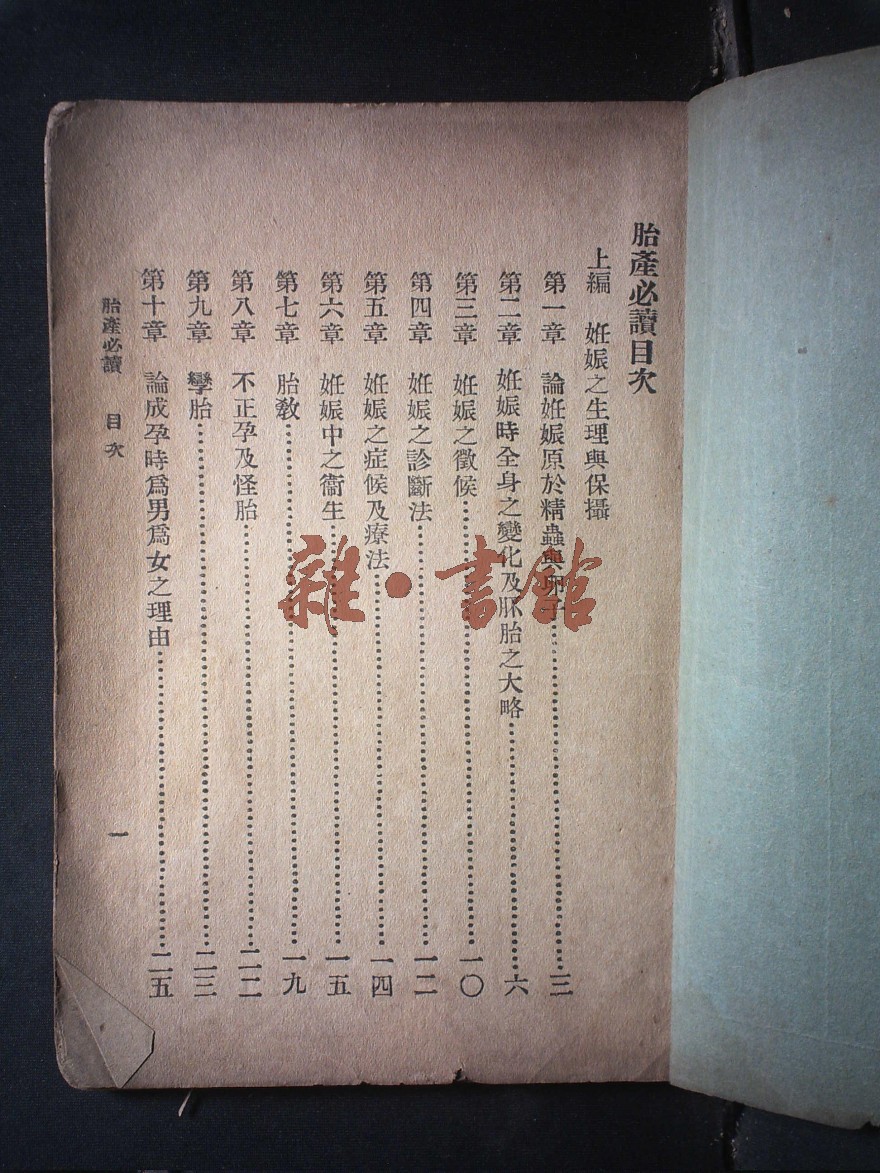 胎產必讀目次
上編　妊娠之生理與保攝
第一章　論妊娠原於精蟲與卵子…………三
第二章　妊娠時全身之變化及胚胎之大略…………六
第三章　妊娠之徵候…………一〇
第四章　妊娠之診斷法…………一二
第五章　妊娠之症候及療法…………一四
第六章　妊娠中之衞生…………一五
第七章　胎教…………一九
第八章　不正孕及怪胎…………二二
第九章　孿胎…………二三
第十章　論成孕時爲男爲女之理由…………二五
胎產必讀　目次
一
雜·書館